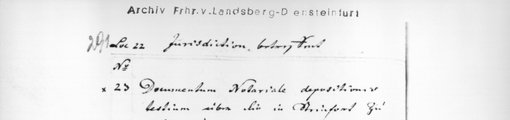 Archiv Frhr.v.Landsberg-Drensteinfurt
Loc 22 Jurisdiction, betr.
No
x 23 Documentum Notariale depositionis
testium über die in Steinfort zu